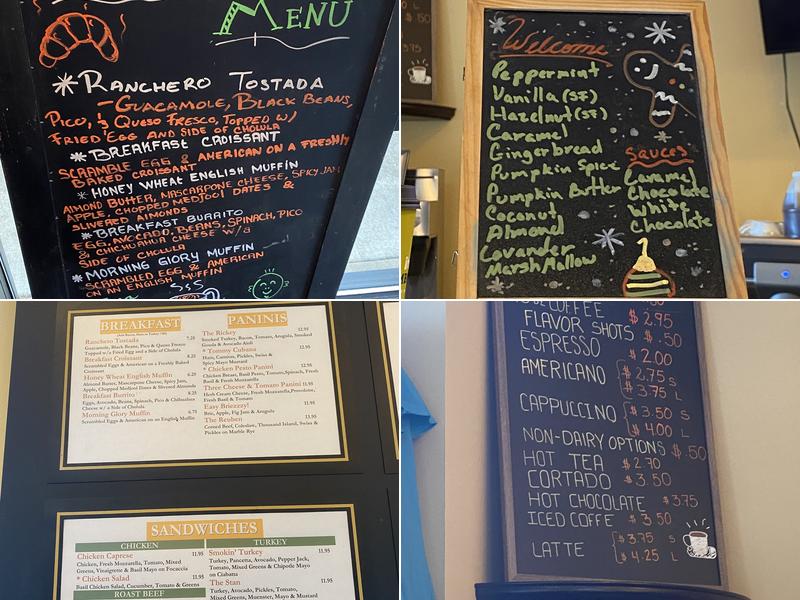 MENU
*RANCHERO TOSTADA
-GUACAMOLE, BLACK BEANS,
PICO, & QUESO FRESCO, TOPPED W/
FRIED EGG AND SIDE OF CHOLULA
*BREAKFAST CROISSANT
SCRAMBLE EGG & AMERICAN ON A FRESHLY
BAKED CROISSANT
*HONEY WHEAT ENGLISH MUFFIN
ALMOND BUTTER, MASCARPONE CHEESE, SPICY JAM
APPLE, CHOPPED MEDJOOL DATES &
SLIVERED ALMONDS
*BREAKFAST BURRITO
EGG, AVOCADO, BEANS, SPINACH, PICO
& CHICHUAHUA CHEESE W/ a
SIDE OF CHOLULA
*MORNING GLORY MUFFIN
-SCRAMBLED EGG & AMERICAN
ON AN ENGLISH MUFFIN
Welcome
Peppermint
Vanilla (SF)
Hazelnut (SF)
Caramel
Gingerbread
Pumpkin Spice
Pumpkin Butter
Coconut
Almond
Lavander
Marshmallow
Sauces
Caramel
Chocolate
White
Chocolate
BREAKFAST
Ranchero Tostada 7.25
Guacamole, Black Beans, Pico & Queso Fresco
Topped w/a Fried Egg and a Side of Cholula
Breakfast Croissant 8.25
Scrambled Eggs & American on a Freshly Baked
Croissant
Honey Wheat English Muffin 6.25
Almond Butter, Mascarpone Cheese, Spicy Jam,
Apple, Chopped Medjool Dates & Slivered Almonds
Breakfast Burrito 8.25
Eggs, Avocado, Beans, Spinach, Pico & Chihuahua
Cheese w/a Side of Cholula
Morning Glory Muffin 6.75
Scrambled Eggs & American on an English Muffin
PANINIS
The Rickey 12.95
Smoked Turkey, Bacon, Tomato, Arugula, Smoked
Gouda & Avocado Aioli
* Tommy Cubana 12.95
Ham, Carnitas, Pickles, Swiss &
Spicy Mayo Mustard
* Chicken Pesto Panini 12.95
Chicken Breast, Basil Pesto, Tomato, Spinach, Fresh
Basil & Fresh Mozzarella
Three Cheese & Tomato Panini 11.95
Herb Cream Cheese, Fresh Mozzarella, Provolone,
Fresh Basil & Tomato
Easy Briezzzy! 11.95
Brie, Apple, Fig Jam & Arugula
The Reuben 13.95
Corned Beef, Coleslaw, Thousand Island, Swiss &
Pickles on Marble Rye
SANDWICHES
CHICKEN
Chicken Caprese 11.95
Chicken, Fresh Mozzarella, Tomato, Mixed
Greens, Vinaigrette & Basil Mayo on Focaccia
* Chicken Salad 11.95
Basil Chicken Salad, Cucumber, Tomato & Greens
ROAST BEEF
TURKEY
Smokin' Turkey 11.95
Turkey, Pancetta, Avocado, Pepper Jack,
Tomato, Mixed Greens & Chipotle Mayo
on Ciabatta
The Stan 11.95
Turkey, Avocado, Pickles, Tomato,
Mixed Greens, Muenster, Mayo & Mustard
COFFEE $2.75
FLAVOR SHOTS $.50
ESPRESSO $2.00
AMERICANO $2.75 S
$3.75 L
CAPPUCCINO $3.50 S
$4.00 L
NON-DAIRY OPTIONS $.50
HOT TEA $2.70
CORTADO $3.50
HOT CHOCOLATE $3.75
ICED COFFE $3.50
LATTE $3.75 S
$4.25 L